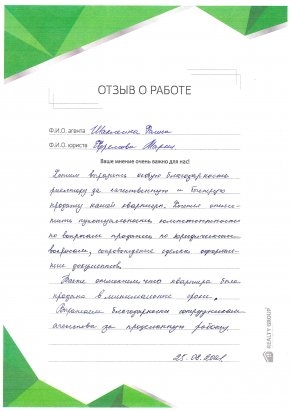 ОТЗЫВ О РАБОТЕ
Ф.И.О. агента
Ф.И.О. юриста Марии
Ваше мнение очень важно для нас!
Хотим выразить особую благодарность
риелтору за качественную и быструю
продажу нашей квартиры. Хотим отме-
тить пунктуальность, компетентность
по вопросам продажи, по юридическим
вопросам, сопровождение сделки, оформле-
ние документов.
Также отмечаем, что квартира была
продана в минимальные сроки.
Выражаем благодарность сотрудникам
агентства за проделанную работу.
25.08.2021
REALTY GROUP